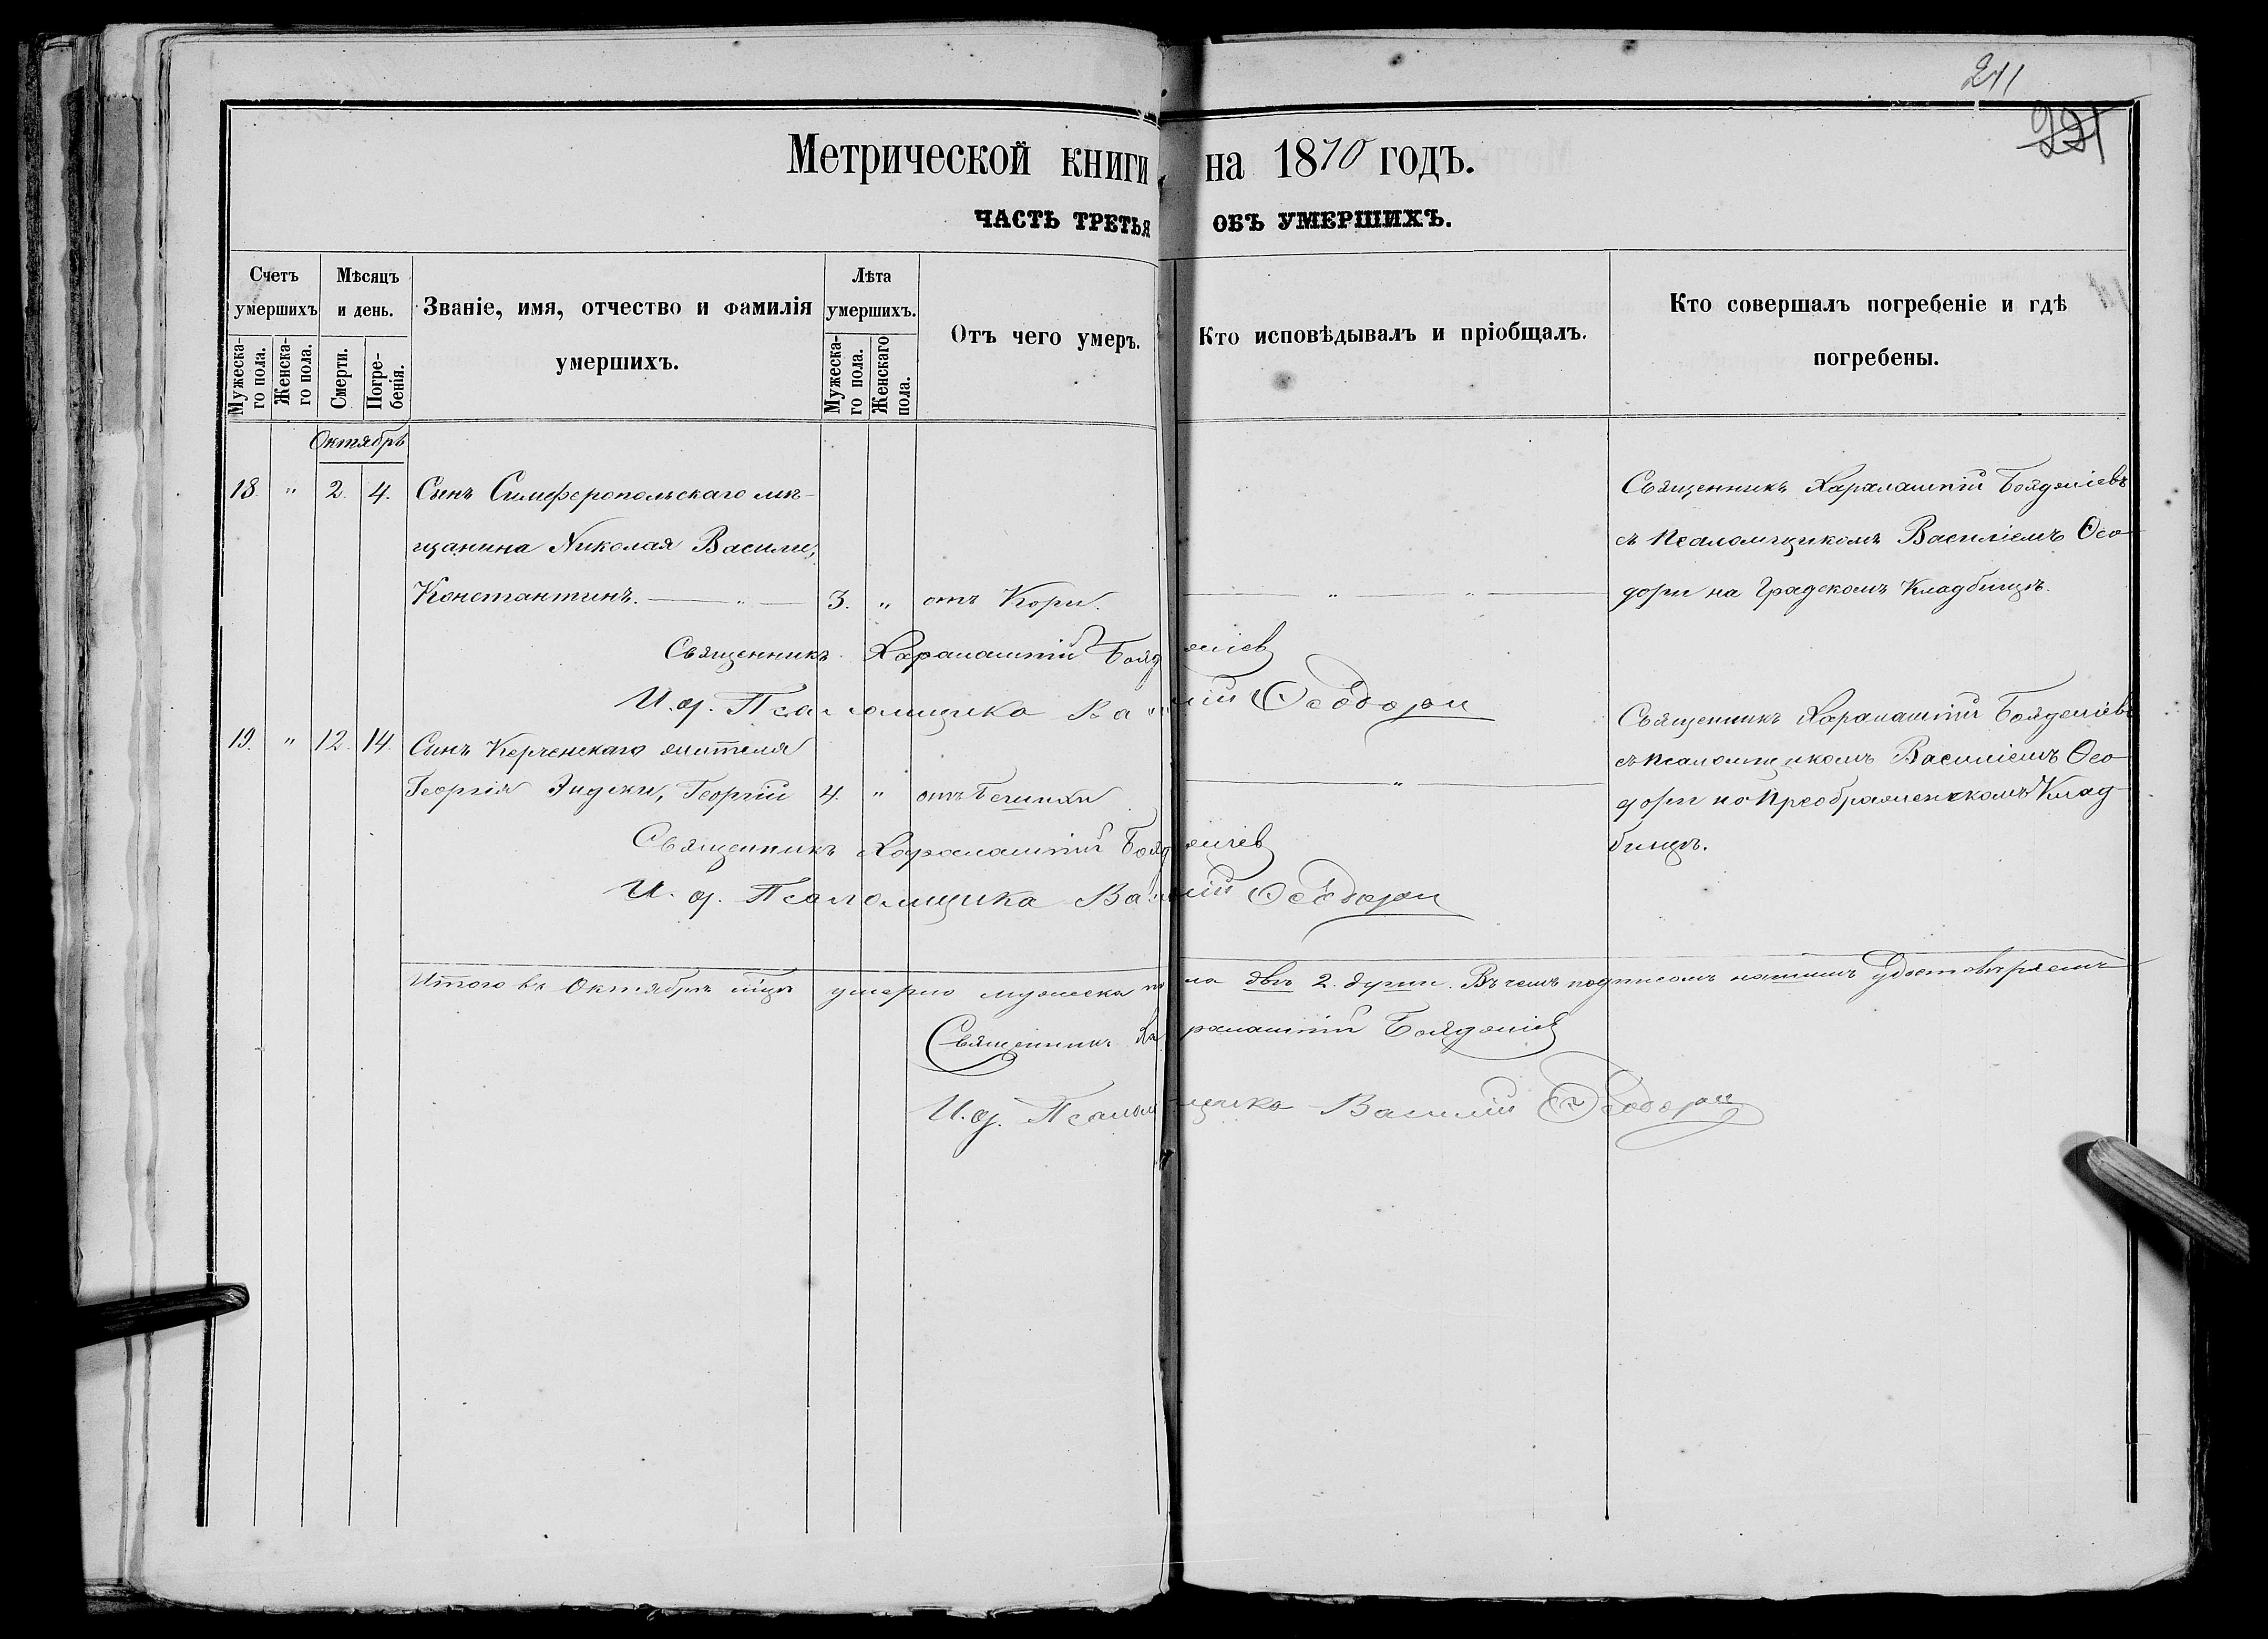 211
221
Метрической книги на 1870 годъ.
ЧАСТЬ ТРЕТЬЯ ОБЪ УМЕРШИХЪ.
Счетъ умершихъ
Мужеска-го пола.
Женска-го пола.
Мѣсяцъ и день.
Смерти.
Погре-бенія.
Званіе, имя, отчество и фамилія умершихъ.
Лѣта умершихъ.
Мужеска-го пола.
Женскаго пола.
Отъ чего умеръ.
Кто исповѣдывалъ и пріобщалъ.
Кто совершалъ погребеніе и гдѣ погребены.
Октябрь
18. " 2. 4. Сынъ Симферопольскаго мѣ-
щанина Николая Васили,
Константинъ. — " — 3. " отъ Кори. — " — " —
Священникъ Харалампій Бояджіевъ
съ псаломщикомъ Василіемъ Ѳео-
дори на Градскомъ Кладбищѣ.
Священникъ Харалампій Бояджіев
И. д. Псаломщика Василій Ѳеодори
19. " 12. 14. Сынъ Керченскаго жителя
Георгія, Георгій 4. " отъ — " —
Священникъ Харалампій Бояджіевъ
съ псаломщикомъ Василіемъ Ѳео-
дори на Преображенскомъ Клад-
бищѣ.
Священникъ Харалампій Бояджіев
И. д. Псаломщика Василій Ѳеодори
Итого въ Октябрѣ мцѣ умерло мужеска пола двѣ 2. души. Въ чемъ подписомъ нашимъ удостовѣряемъ
Священникъ Харалампій Бояджіев
И. д. Псаломщика Василій Ѳеодори